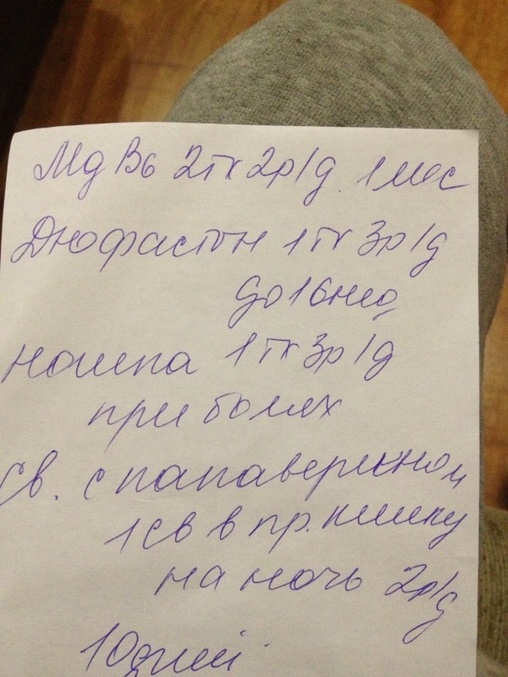 Mg B6 2тх2р/д. 1 мес
Дюфастон 1тх3р/д
до 16нед.
ношпа 1тх3р/д
при болях
Св. с папаверином
1св в пр. кишку
на ночь 2р/д
10дней.